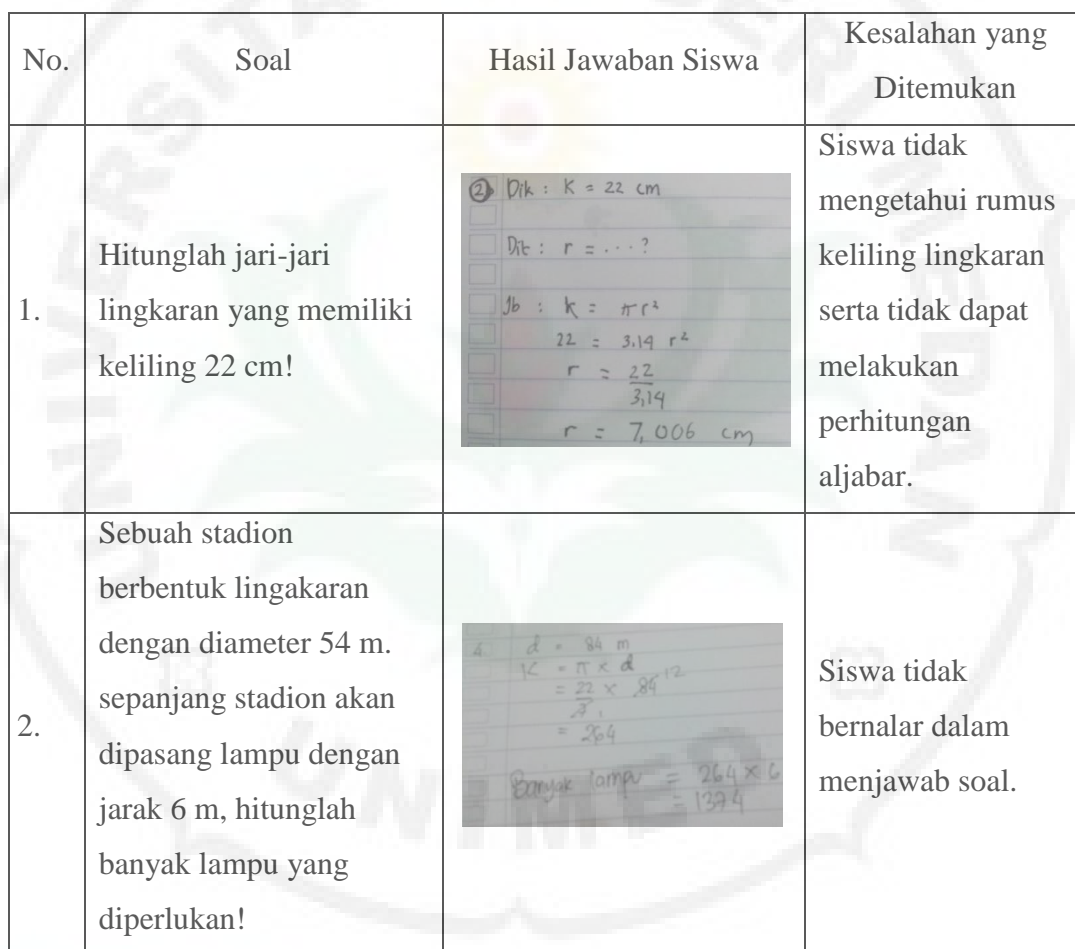 No.
Soal
Hasil Jawaban Siswa
Kesalahan yang
Ditemukan
1.
Hitunglah jari-jari
lingkaran yang memiliki
keliling 22 cm!
② Dik : K = 22 cm
Dit : r = . . . ?
Jb : K = πr²
22 = 3.14 r²
r = 22
3,14
r = 7,006 cm
Siswa tidak
mengetahui rumus
keliling lingkaran
serta tidak dapat
melakukan
perhitungan
aljabar.
2.
Sebuah stadion
berbentuk lingakaran
dengan diameter 54 m.
sepanjang stadion akan
dipasang lampu dengan
jarak 6 m, hitunglah
banyak lampu yang
diperlukan!
4. d = 84 m
K = π x d
= 22 x 84 12
7 1
= 264
Banyak lampu = 264 x 6
= 1374
Siswa tidak
bernalar dalam
menjawab soal.
UNIVERSITAS NEGERI MEDAN
UNIMED